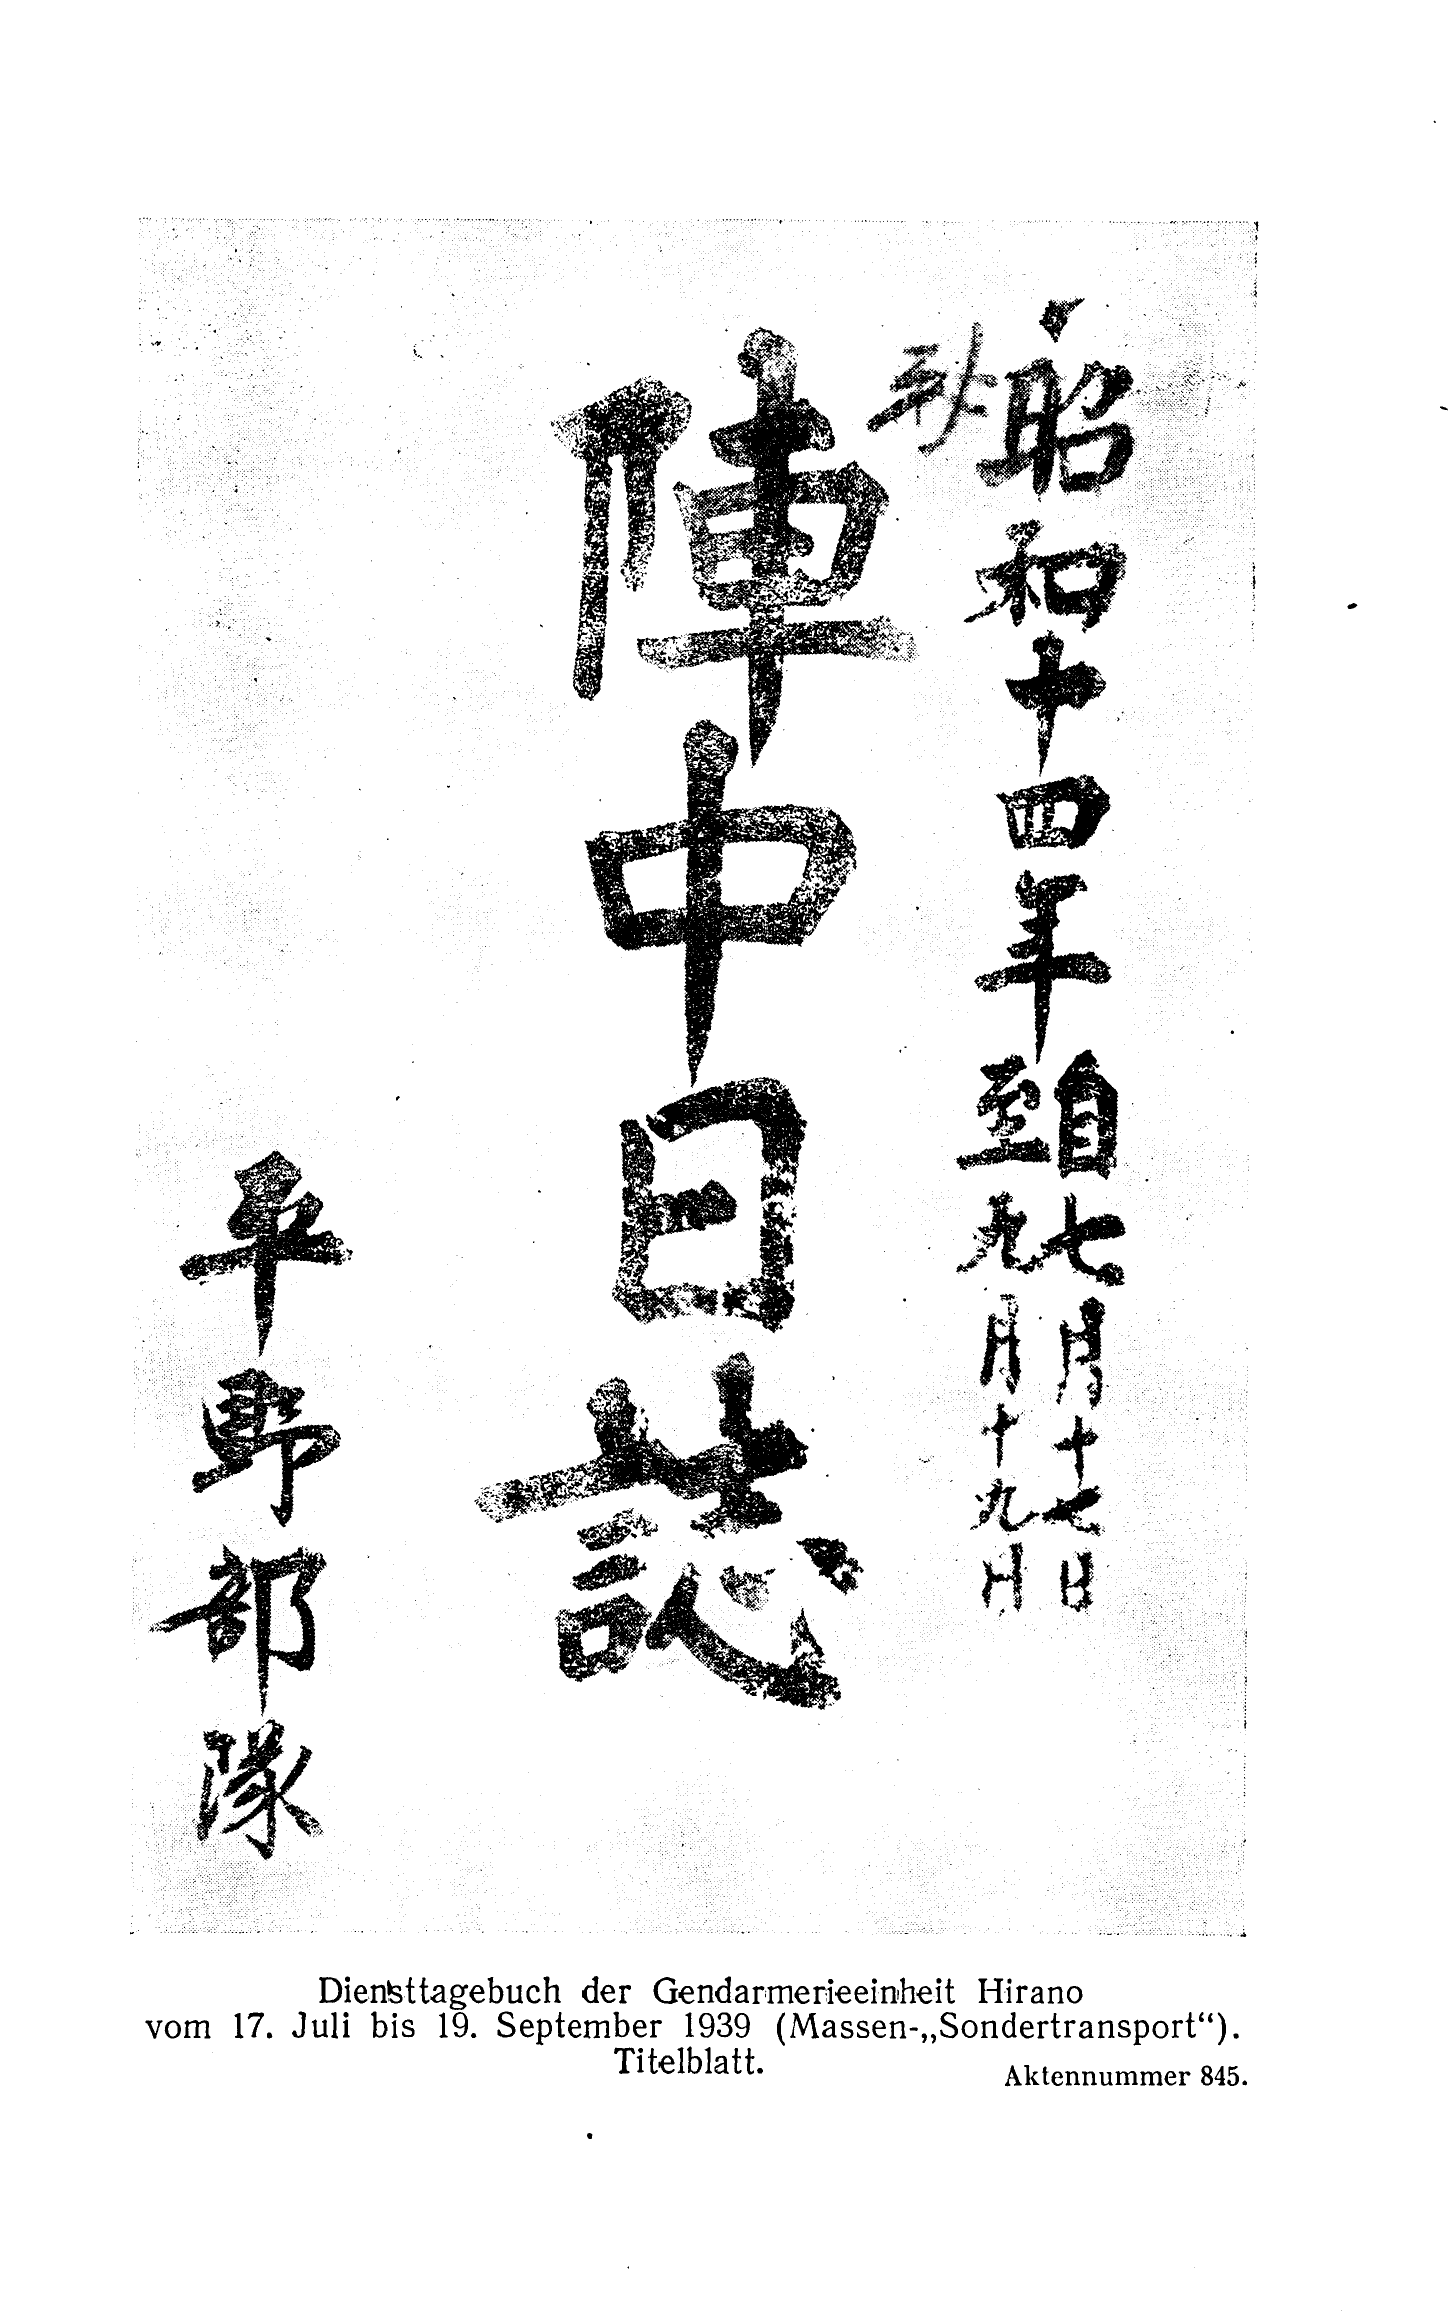 昭和十四年
自七月十七日
至九月十九日
陣中日誌
平野部隊
Diensttagebuch der Gendarmerieeinheit Hirano
vom 17. Juli bis 19. September 1939 (Massen-„Sondertransport“).
Titelblatt.
Aktennummer 845.